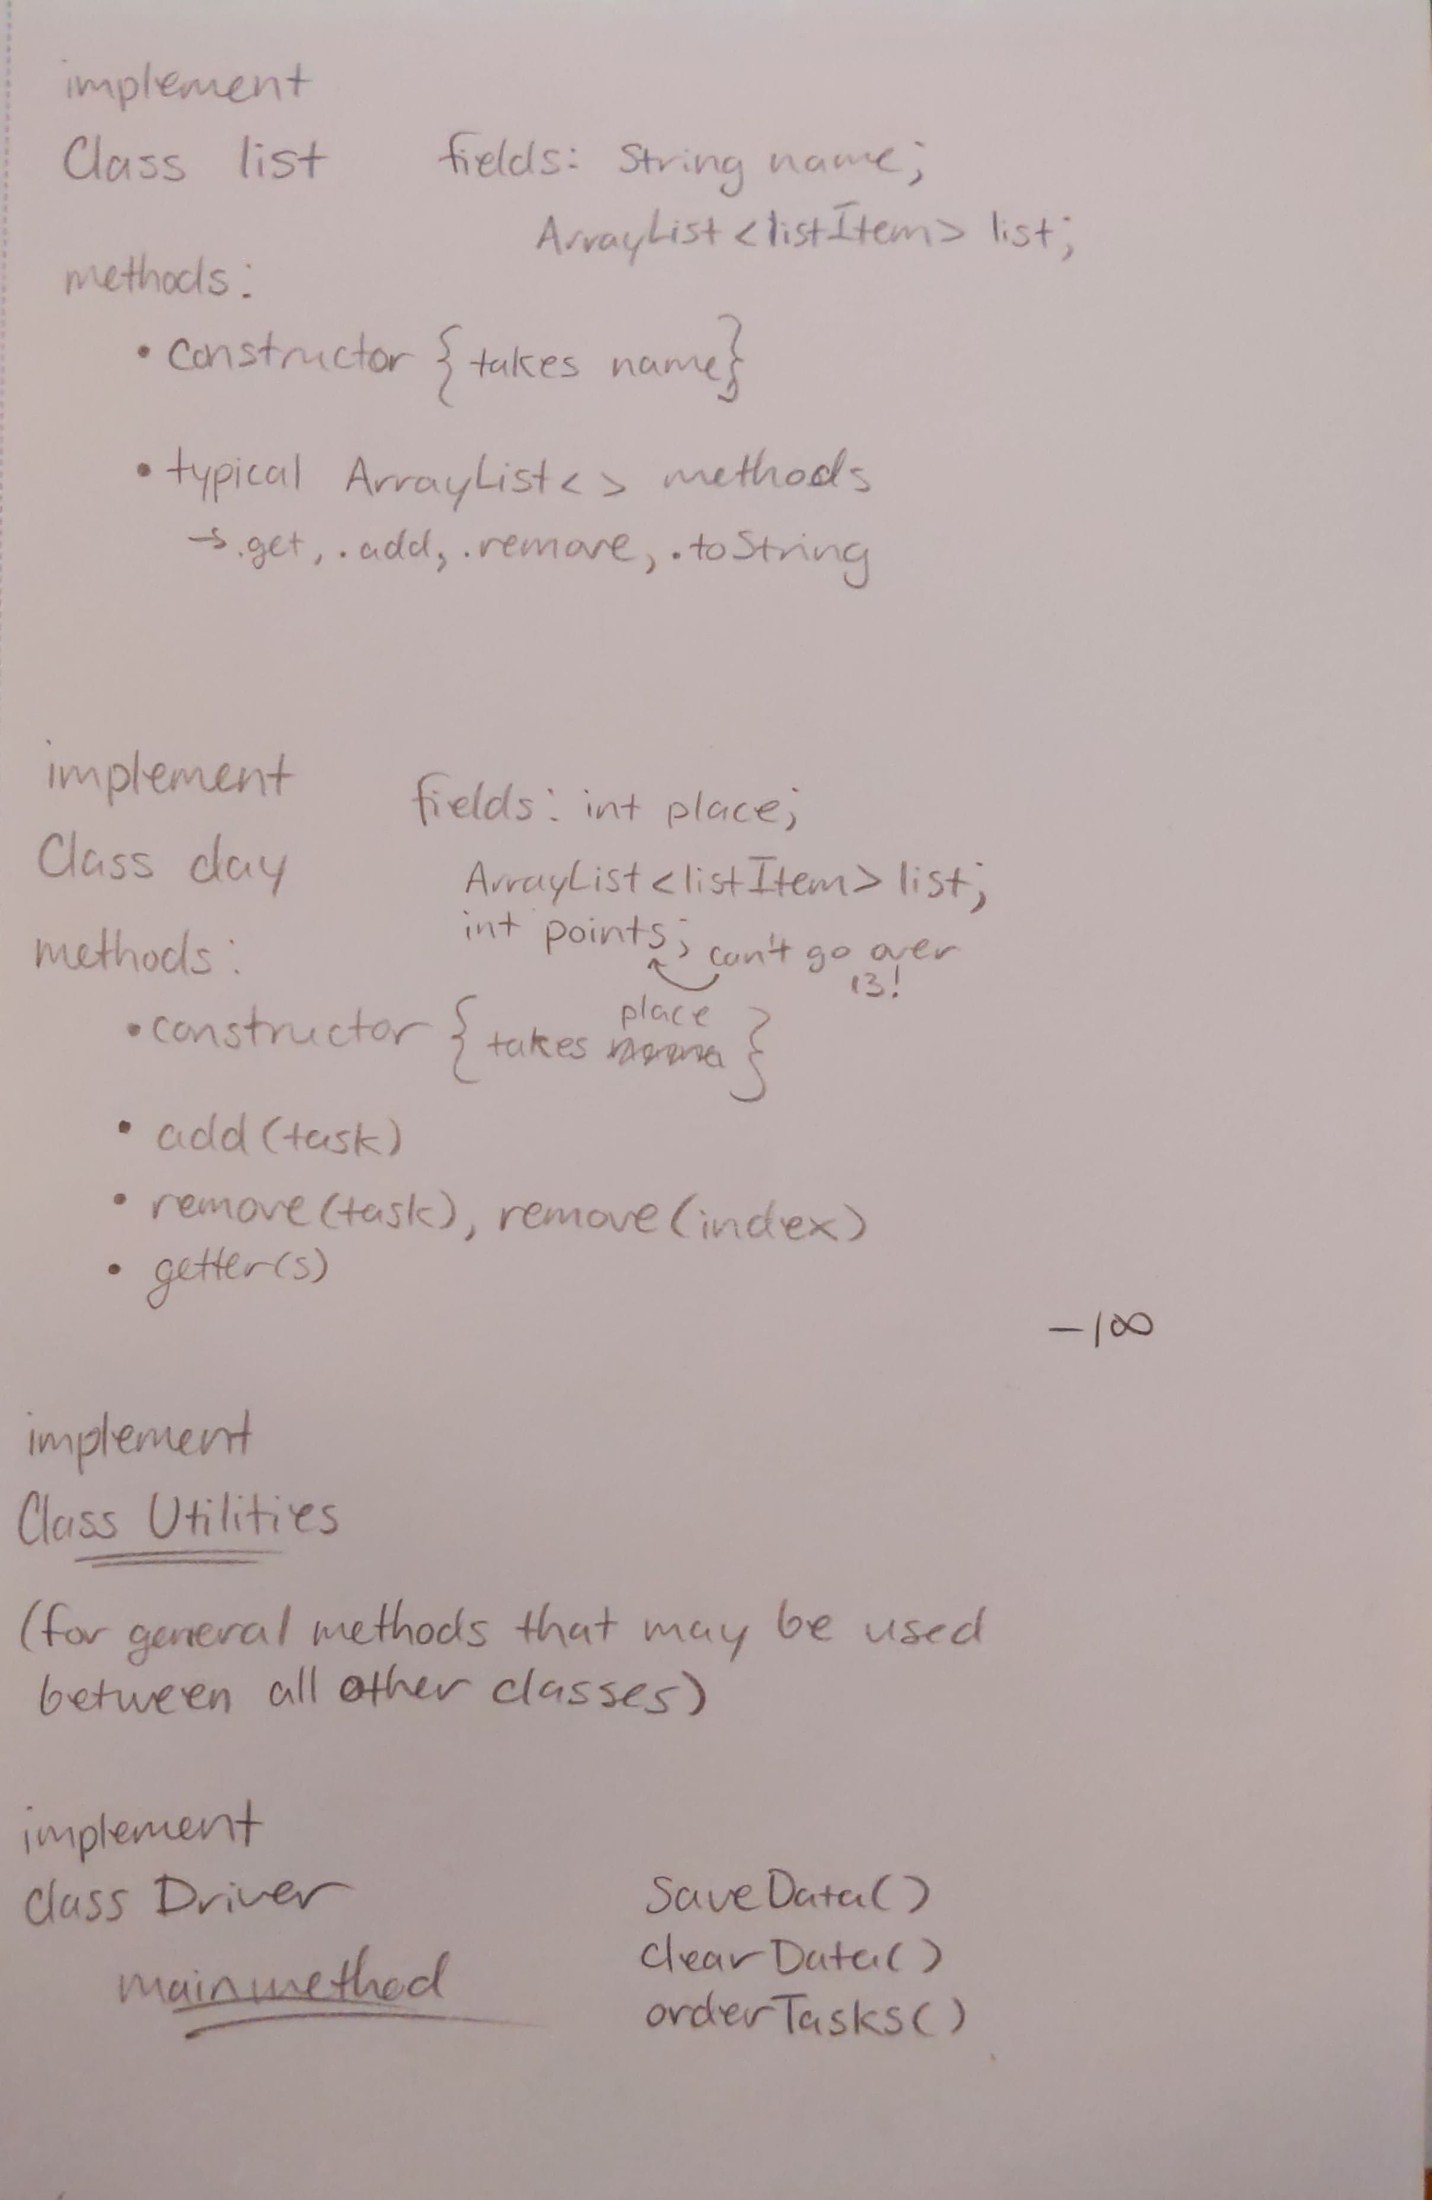 implement
Class list fields: String name;
ArrayList<listItem> list;
methods:
• constructor {takes name}
• typical ArrayList< > methods
→ .get, .add, .remove, .toString
implement
fields: int place;
Class day
ArrayList<listItem> list;
int points; can't go over
13!
methods:
place
• constructor {takes }
• add(task)
• remove(task), remove(index)
• getter(s)
-1∞
implement
Class Utilities
(for general methods that may be used
between all other classes)
implement
class Driver
main method
SaveData()
clearData()
orderTasks()